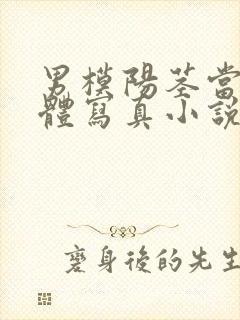 男模陽莖當
體寫真小説
褻身後的先生